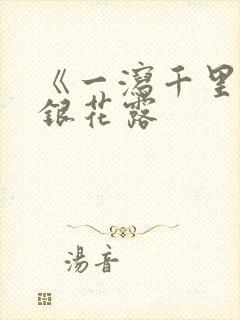 《一瀉千里
銀花露
湯音